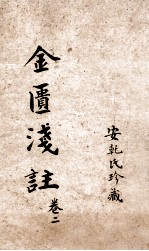 金匱淺註
卷二
安乾氏珍藏